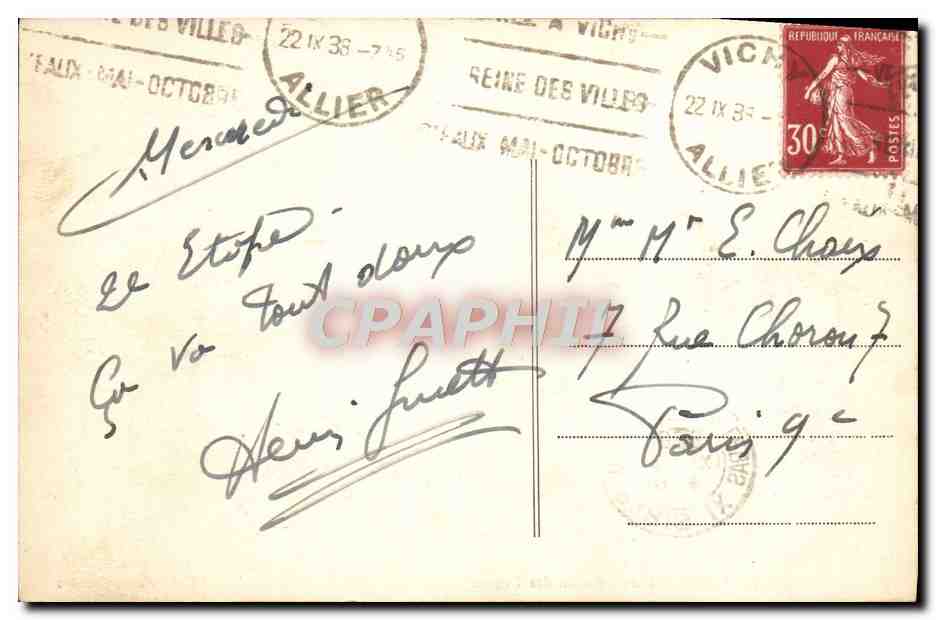 REINE DES VILLES
D'EAUX-MAI-OCTOBRE
22 IX 38 -7 45
ALLIER
A VICHY
REINE DES VILLES
D'EAUX MAI-OCTOBRE
VICHY
22 IX 38 -
ALLIER
REPUBLIQUE FRANÇAISE
30c
POSTES
Mercredi
2e Etape
Ça va tout doux
Henri
Mme Mr E. Choux
7 Rue Choron 7
Paris 9e
CPAPHIL